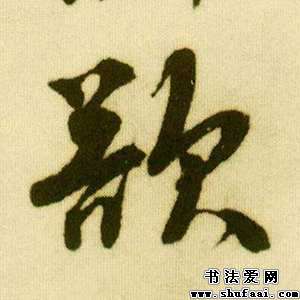 歆
书法爱网
www.shufaai.com